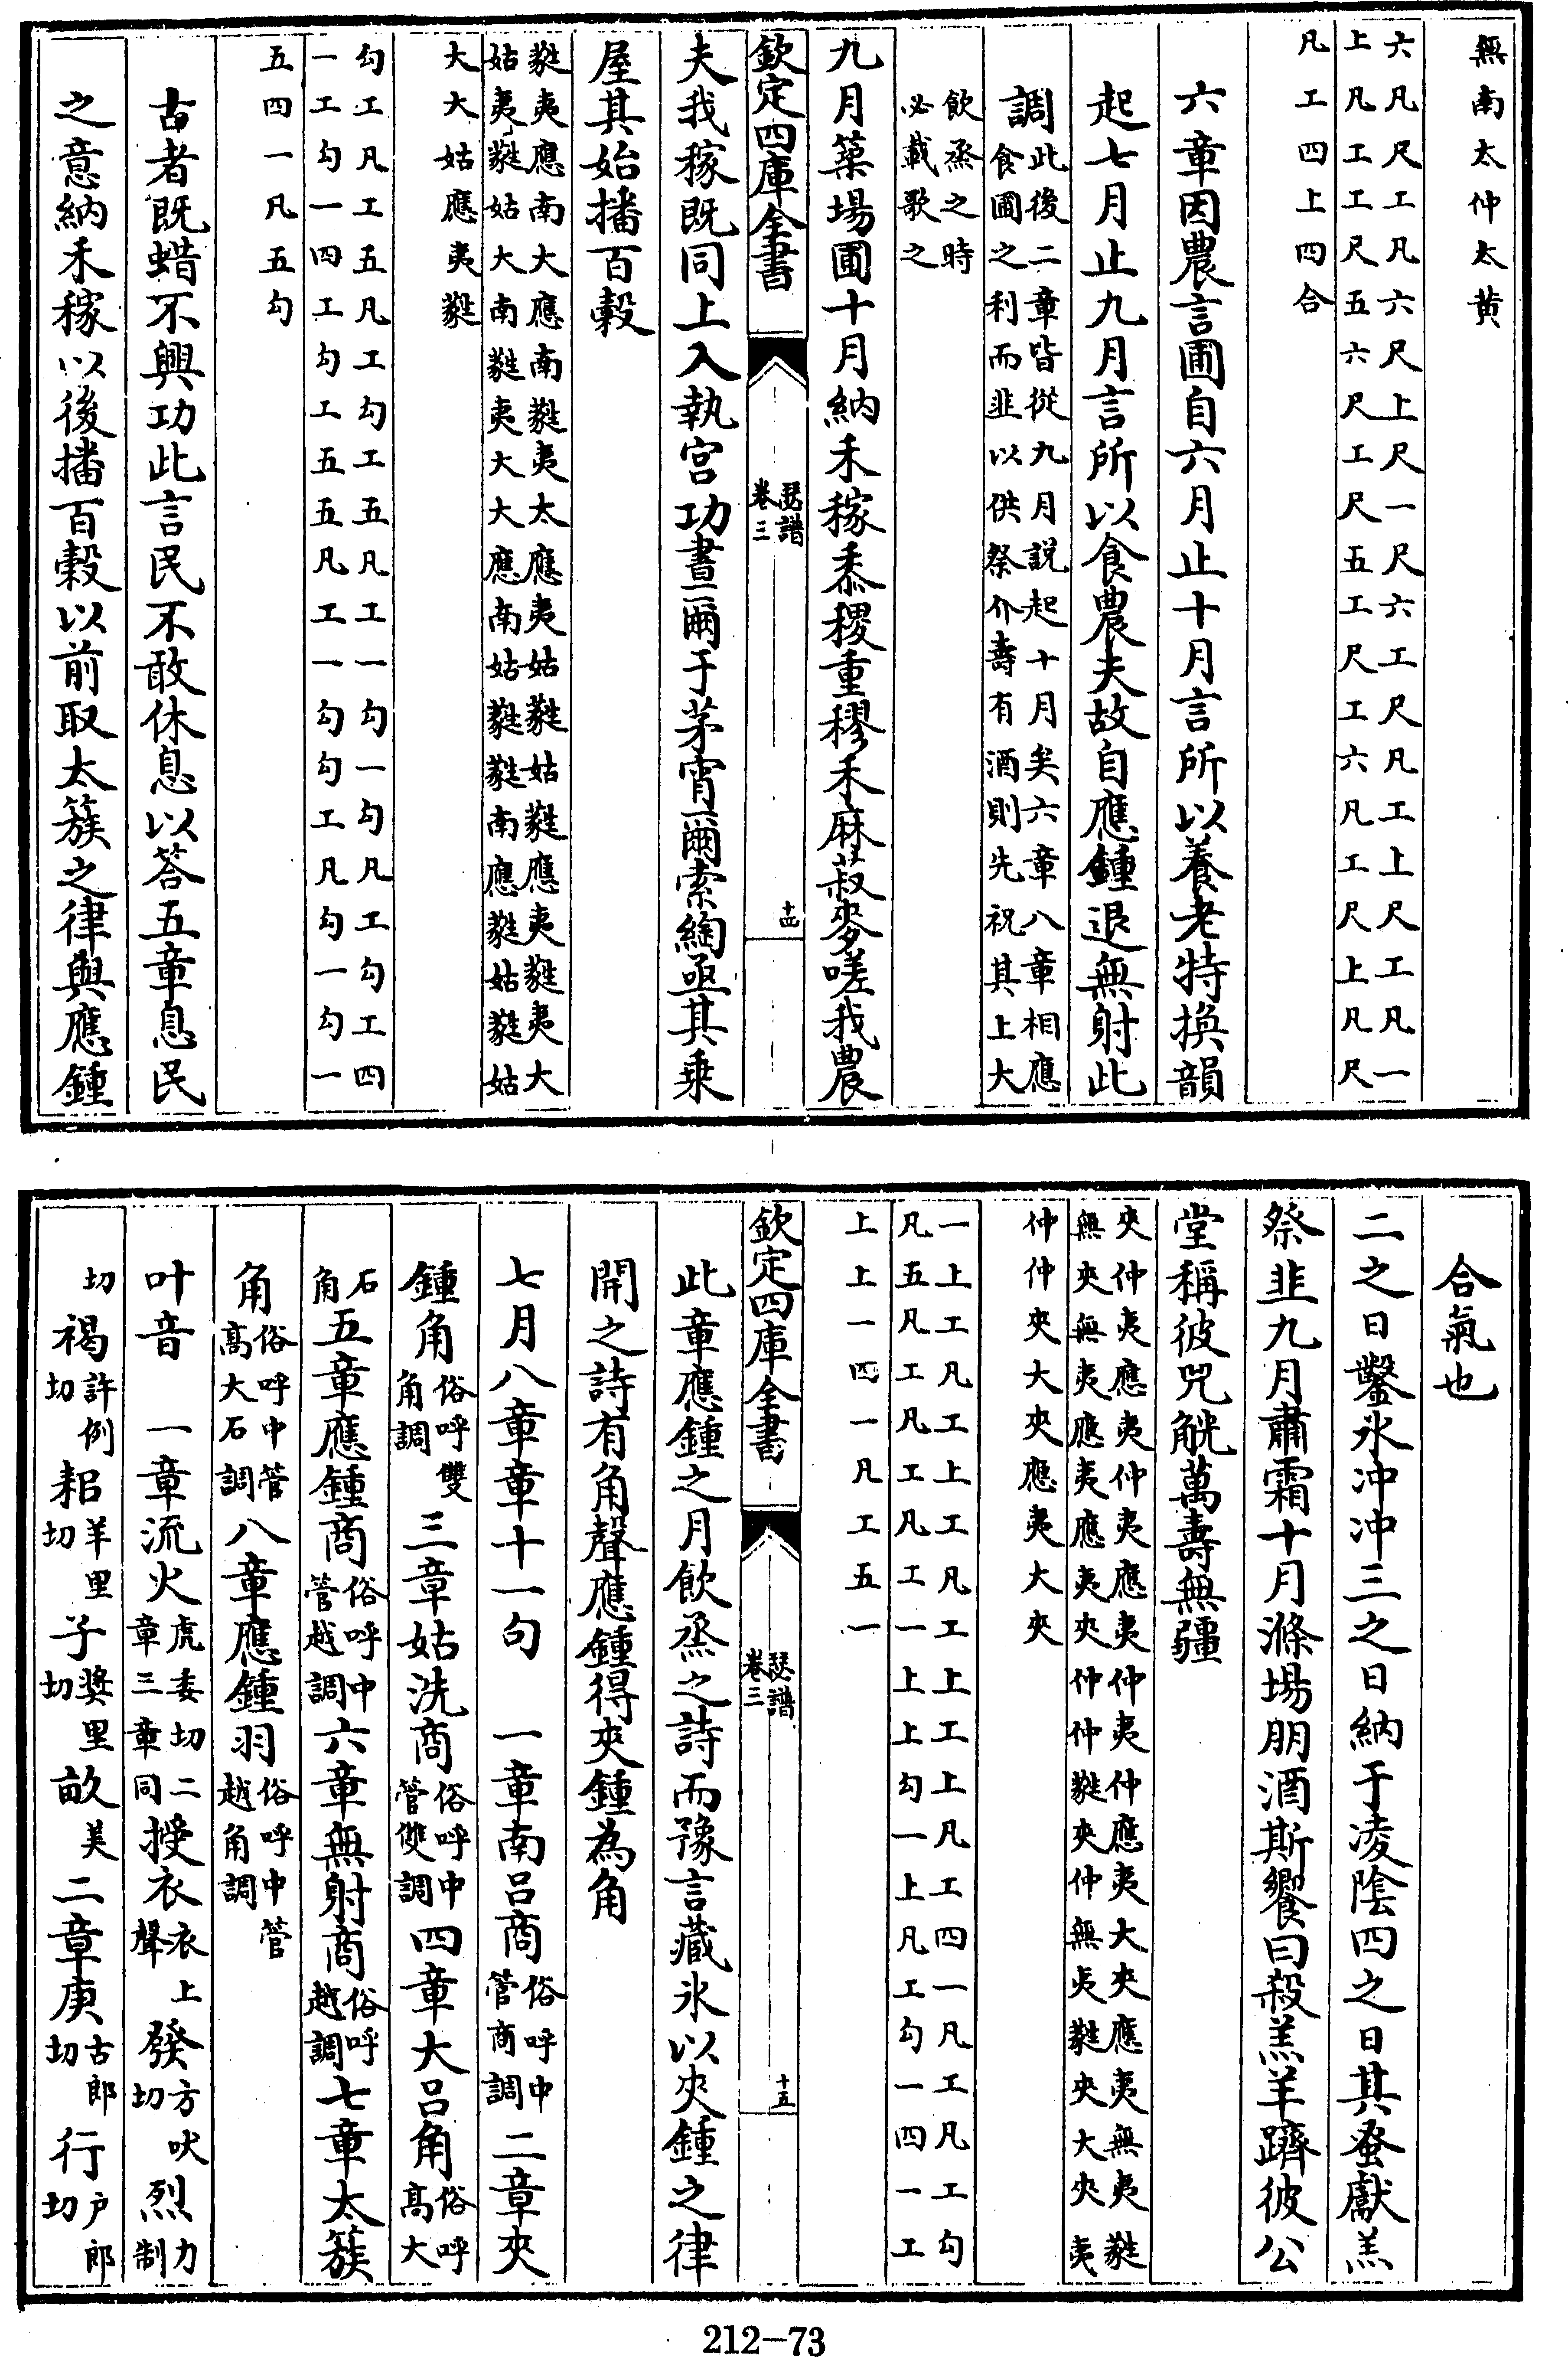 無南太仲太黄
六凡尺工凡六尺上尺一尺六工尺凡工上尺工凡一
上凡工工尺五六尺工尺五工尺工六凡工尺上凡尺
凡工四上四合
六章因農言圃自六月止十月言所以養老特換韻
起七月止九月言所以食農夫故自應鍾退無射此
調
此後二章皆從九月説起十月矣六章八章相應
食圃之利而韭以供祭介壽有酒則先祝其上大
飲烝之時
必載歌之
九月築場圃十月納禾稼黍稷重穋禾麻菽麥嗟我農
欽定四庫全書
瑟譜
卷三
十四
夫我稼既同上入執宫功晝爾于茅宵爾索綯亟其乗
屋其始播百穀
蕤夷應南大應南蕤夷太應夷姑蕤姑蕤應夷蕤夷大
姑夷蕤姑大南蕤夷大大應南姑蕤蕤南應蕤姑蕤姑
大大姑應夷蕤
勾工凡工五凡工勾工五凡工一勾一勾凡工勾工四
一工勾一四工勾工五五凡工一勾勾工凡勾一勾一
五四一凡五勾
古者既蜡不興功此言民不敢休息以答五章息民
之意納禾稼以後播百穀以前取太簇之律與應鍾
合氣也
二之日鑿氷冲冲三之日納于凌陰四之日其蚤獻羔
祭韭九月肅霜十月滌場朋酒斯饗曰殺羔羊躋彼公
堂稱彼兕觥萬壽無疆
夾仲夷應夷仲夷應夷仲夷仲應夷大夾應夷無夷蕤
無夾無夷應夷應夷夾仲仲蕤夾仲無夷蕤夾大夾夷
仲仲夾大夾應夷大夾
一上工凡工上工凡工上工上凡工四一凡工凡工勾
凡五凡工凡工凡工一上上勾一上凡工勾一四一工
上上一四一凡工五一
欽定四庫全書
瑟譜
卷三
十五
此章應鍾之月飲烝之詩而豫言藏氷以夾鍾之律
開之詩有角聲應鍾得夾鍾為角
七月八章章十一句 一章南吕商俗呼中管商調 二章夾
鍾角俗呼雙角調 三章姑洗商俗呼中管雙調 四章大吕角俗呼高大
石角 五章應鍾商俗呼中管越調 六章無射商俗呼越調 七章太簇
角俗呼中管高大石調 八章應鍾羽俗呼中管越角調
叶音 一章流火虎委切二章三章同 授衣衣上聲 發方吠切 烈力制
切 褐許例切 耜羊里切 子奨里切 畝美 二章庚古郎切 行户郎切
212-73